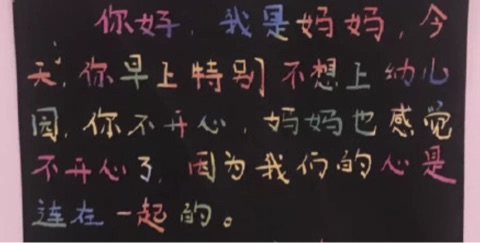 你好，我是妈妈，今
天，你早上特别不想上幼儿
园，你不开心，妈妈也感觉
不开心了，因为我们的心是
连在一起的。